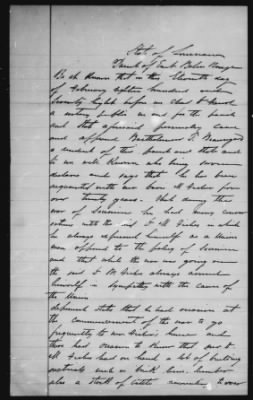 State of Louisiana
Parish of East Baton Rouge
Be it Known that on this Eleventh day
of February eighteen hundred and
Seventy Eight before me Chas
a notary public in and for the parish
and State aforesaid personally came
and appeared Bartholomew
a resident of this parish and State and
to me well Known who being sworn
declares and says that he has been
acquainted with one for
over twenty years. That during the
war of Secession he had many conver
sations with the said in which
he always expressed himself as a Union
man opposed to the policy of Secession
and that while the war was going on
the said always
himself in sympathy with the cause of
the Union
deponent states that he had occasion at
the commencement of the war to go
frequently to house and
there had reason to Know that
had on hand a lot of building
materials such as brick lumber
also a Stock of Cattle over